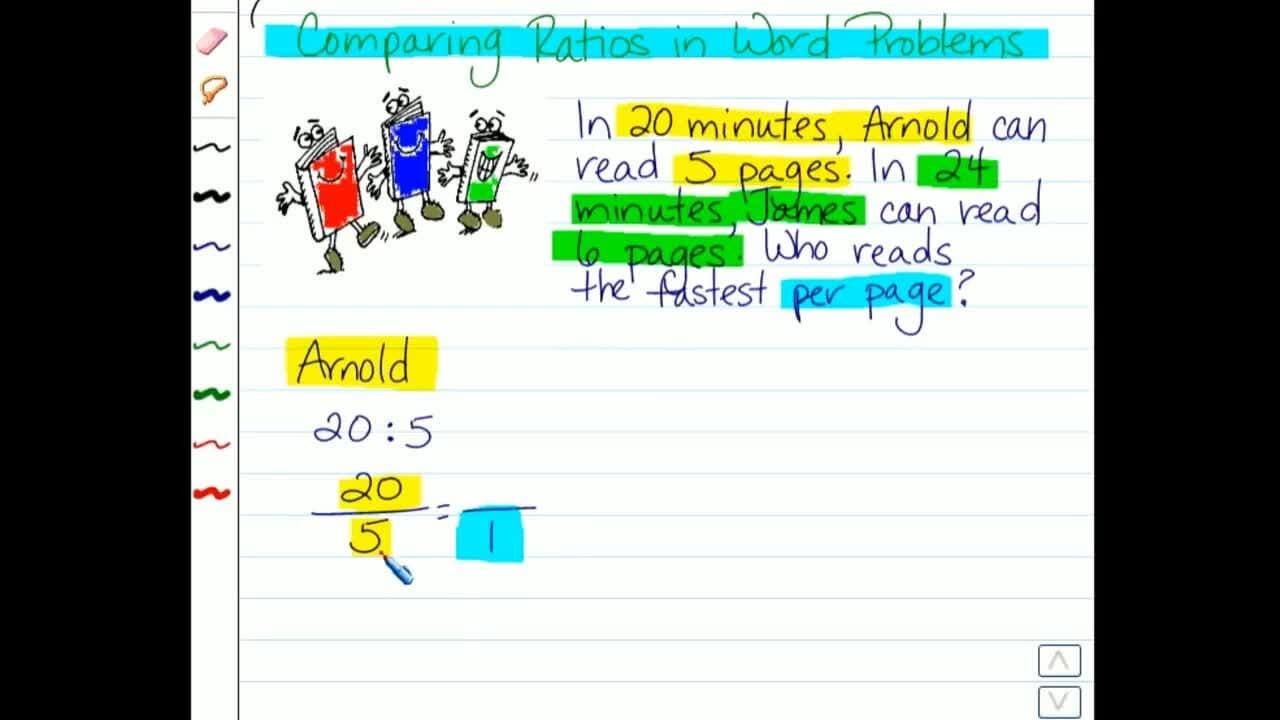 Comparing Ratios in Word Problems
In 20 minutes, Arnold can
read 5 pages. In 24
minutes, James can read
6 pages. Who reads
the fastest per page?
Arnold
20 : 5
20
5
=
1